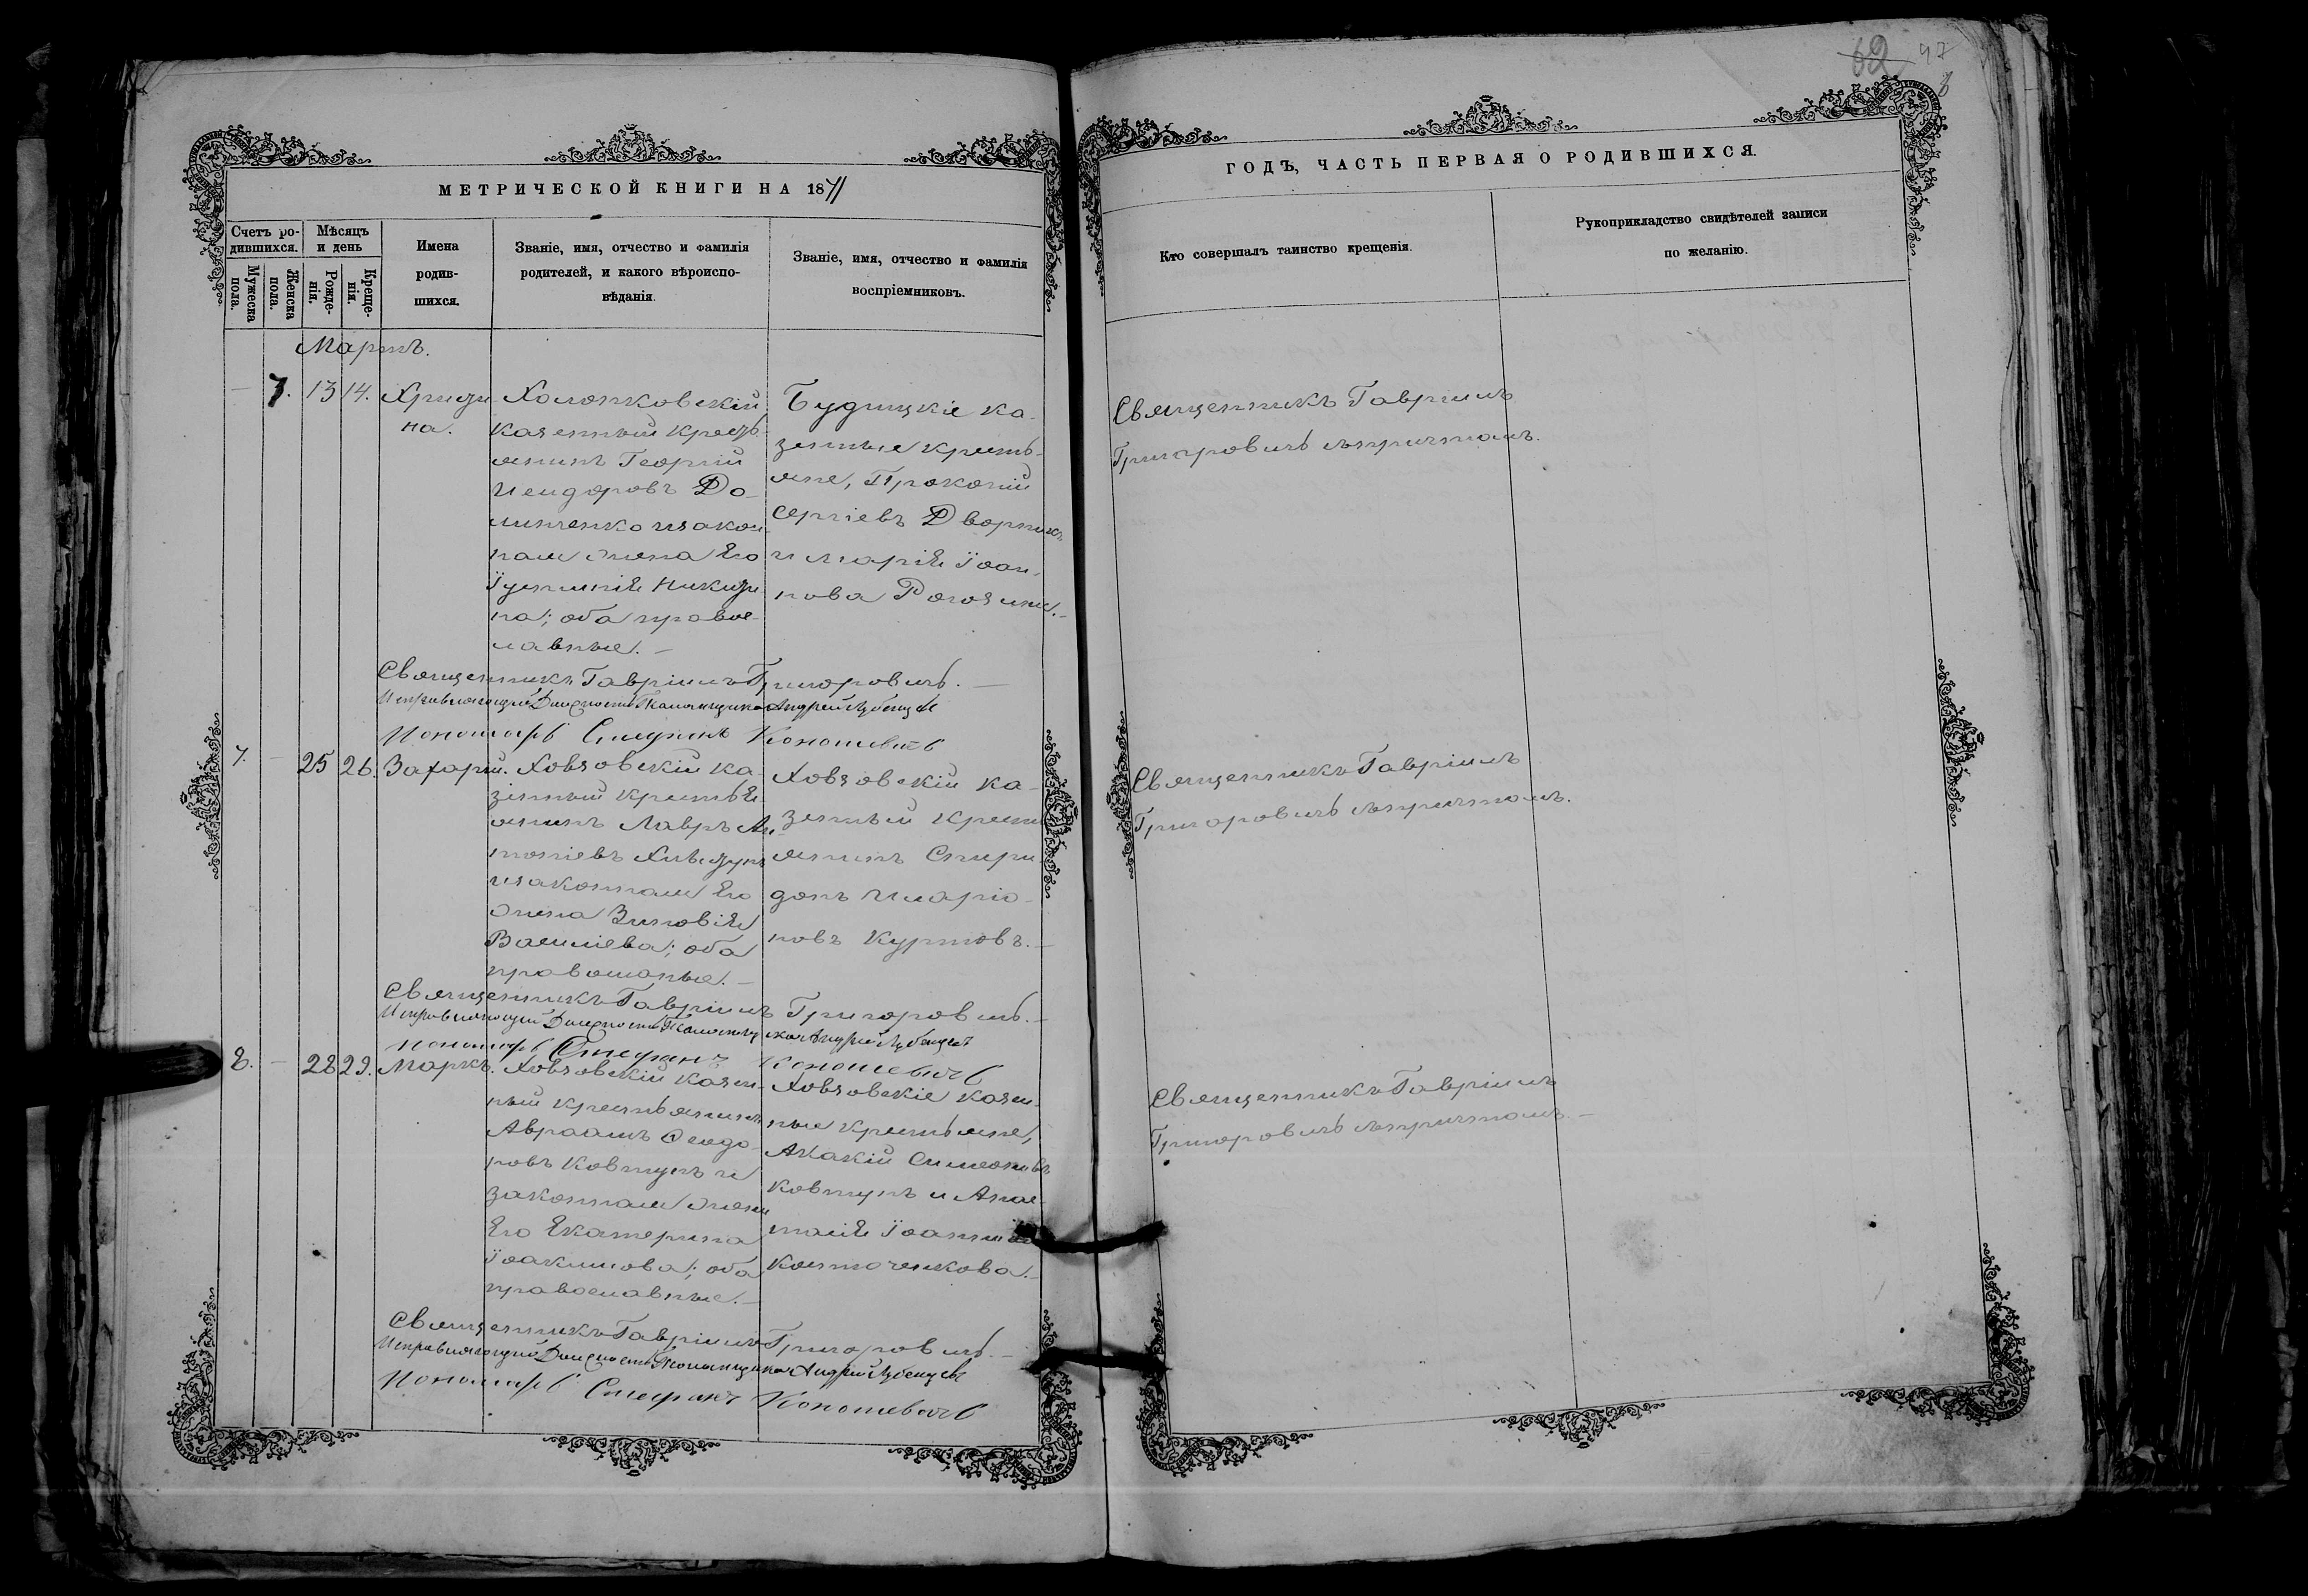 62 97
МЕТРИЧЕСКОЙ КНИГИ НА 1871
ГОДЪ, ЧАСТЬ ПЕРВАЯ О РОДИВШИХСЯ.
Счетъ ро-
дившихся.
Мужеска
пола.
Женска
пола.
Мѣсяцъ
и день
Рожде-
нія.
Креще-
нія.
Имена
родив-
шихся.
Званіе, имя, отчество и фамилія
родителей, и какого вѣроиспо-
вѣданія.
Званіе, имя, отчество и фамилія
воспріемниковъ.
Кто совершалъ таинство крещенія.
Рукоприкладство свидѣтелей записи
по желанію.
Мартъ.
7. 13 14. Христи
на.
Холопковскій
казенный кресть-
янинъ Георгій
Исидоровъ До-
линченко изакон
ная жена Его
Іустинія Никити
на; оба правос-
лавные.
Будищкіе ка-
зенные кресть-
яне, Прокопій
Сергіевъ Дворник
и Марія Іоан-
нова
Священникъ Гавріилъ
Григоровичъ съпричтомъ.
Священникъ Гавріилъ Григоровичъ.
Исправляющій Должность Псаломщика Андрей
Пономарь Стефанъ Кононевичъ
7. 25 26. Захарій.
Ховзовскій ка-
зенный крестья
янинъ Лавръ Ан
тоніевъ
изаконная Его
жена Зиновія
Василіева; оба
православные.
Ховзовскій ка-
зенный кресть
янинъ Спири-
донъ Иларіо-
новъ Куртовъ.
Священникъ Гавріилъ
Григоровичъ съпричтомъ.
Священникъ Гавріилъ Григоровичъ.
Исправляющій Должность Псаломщика Андрей
Пономарь Стефанъ Кононевичъ
8. 28 29. Маркъ.
Ховзовскій казен-
ный крестьянинъ
Авраамъ Ѳеодо-
ровъ Ковтунъ и
законная жена
Его Екатерина
Іоакимова; оба
православные.
Ховзовскіе казен-
ные крестьяне,
Акакій Симеоновъ
Ковтунъ и Анас-
тасія Іоаннова
Священникъ Гавріилъ
Григоровичъ съпричтомъ.
Священникъ Гавріилъ Григоровичъ.
Исправляющій Должность Псаломщика Андрей
Пономарь Стефанъ Кононевичъ